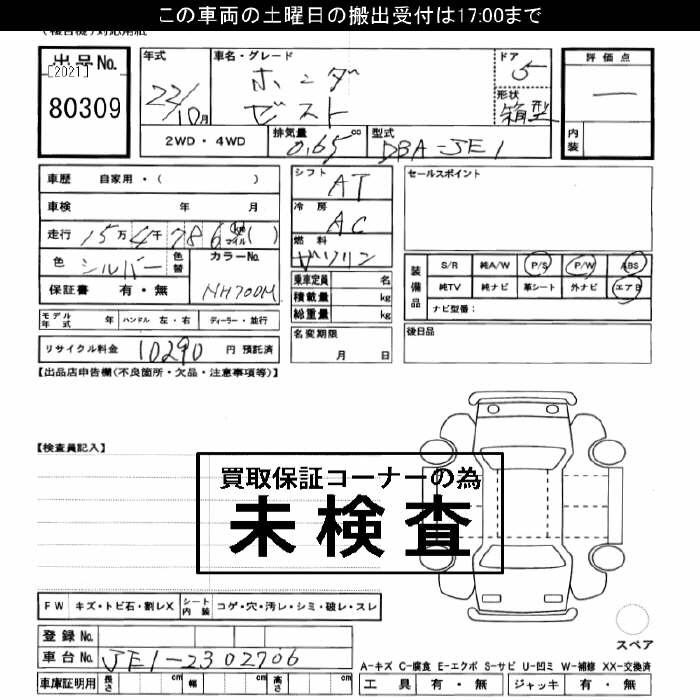 この車両の土曜日の搬出受付は17:00まで
出品No. [2021] 80309
年式 22/10月
車名・グレード ホンダ ゼスト
ドア 5
形状 箱型
評価点 ―
内装
2WD・4WD
排気量 0.65 cc
型式 DBA-JE1
車歴 自家用・( )
車検 年 月
走行 15万4千786 km マイル ( )
色 シルバー 色替 カラーNo. NH700M
保証書 有・無
モデル年式 年 ハンドル 左・右 ディーラー・並行
リサイクル料金 10290 円 預託済
シフト AT
冷房 AC
燃料 ガソリン
乗車定員 名
積載量 kg
総重量 kg
名変期限 月 日
セールスポイント
装備品 S/R 純A/W P/S P/W ABS
純TV 純ナビ 革シート 外ナビ エアB
ナビ型番:
後日品
【出品店申告欄(不良箇所・欠品・注意事項等)】
【検査員記入】
買取保証コーナーの為
未検査
FW キズ・トビ石・割レX シート内装 コゲ・穴・汚レ・シミ・破レ・スレ
登録No.
車台No. JE1-2302706
車庫証明用 長さ cm 幅 cm 高さ cm
スペア
A-キズ C-腐食 E-エクボ S-サビ U-凹ミ W-補修 XX-交換済
工具 有・無 ジャッキ 有・無